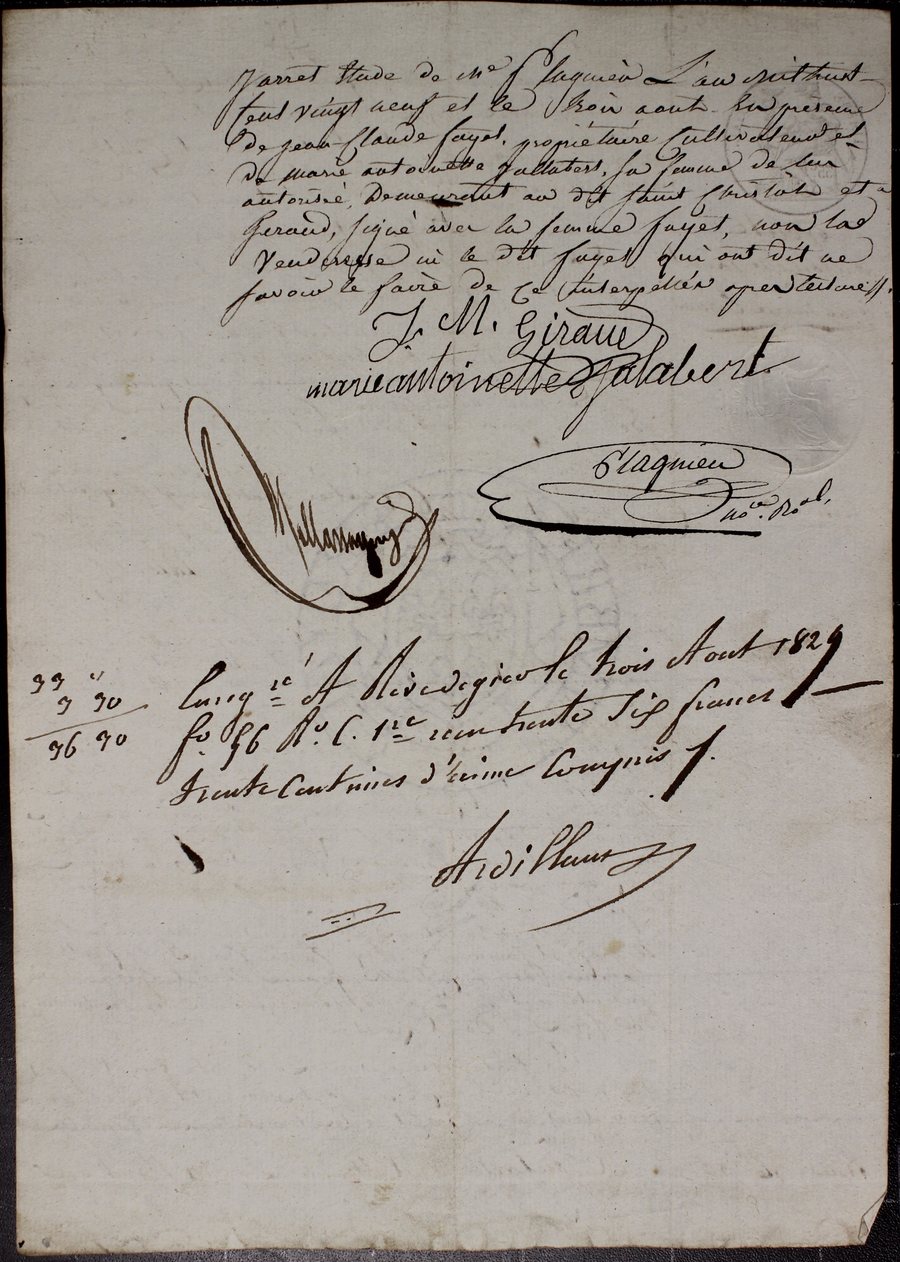 Jarret Etude de Me Plagnieu L'an mil huit
Cent vingt neuf et le trois aout En présence
de jean Claude fayet, propriétaire Cultivateur et
de marie antoinette jallabert, sa femme de lui
autorisé, Demeurant au dit saint Christôt et
Geraud, signé avec la femme fayet, non la
Venderesse ni le dit fayet qui ont dit ne
savoir le faire de Ce interpellés après lecture
J. M. Giraud
marieantoinette Jalabert
Plagnieu
nore. Roal.
33 "
3 30
36 30
Enregré A Rivedegier le trois Aout 1829
fo. 56 Ro. C. 1re reçu trente Six francs
trente Centimes d'ecime Compris
Ardillant